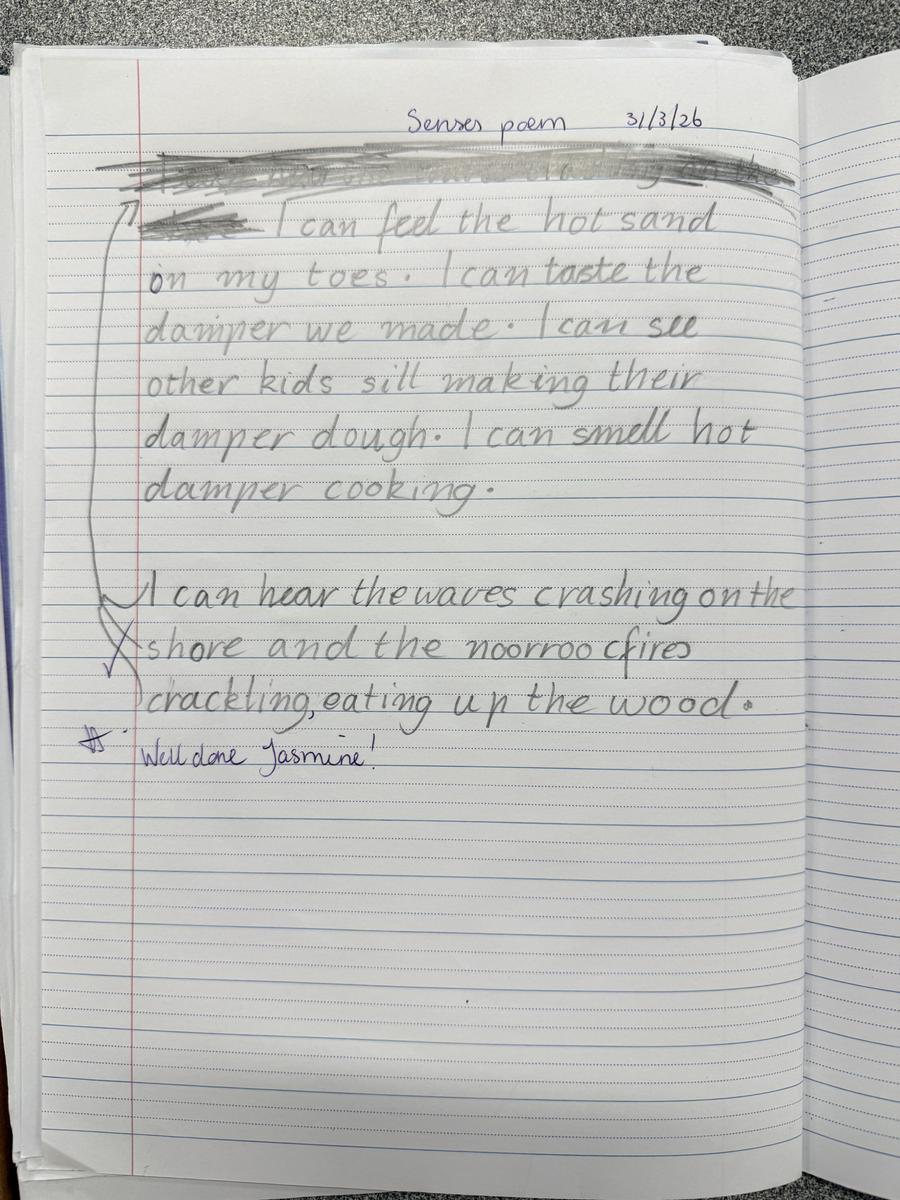 Senses poem 31/3/26
I can feel the hot sand
on my toes. I can taste the
damper we made. I can see
other kids sill making their
damper dough. I can smell hot
damper cooking.
I can hear the waves crashing on the
shore and the noorroo cfires
crackling, eating up the wood.
Well done Jasmine!